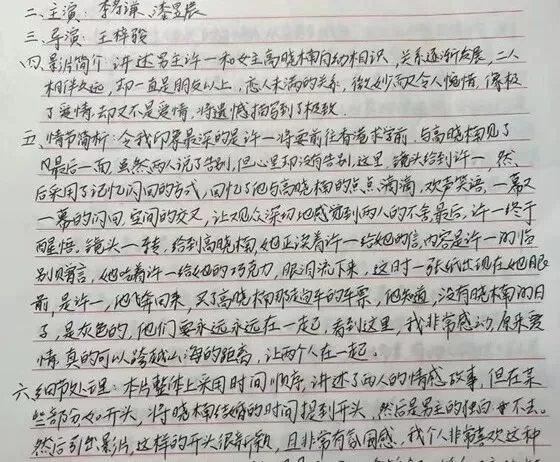 二、主演：李易谦、漆昱辰
三、导演：王梓骏
四、影片简介：讲述男主许一和女主高晓楠自幼相识，关系逐渐发展，二人
相伴久远，却一直是朋友以上，恋人未满的关系，微妙而又令人惋惜，像极
了爱情，却又不是爱情，将遗憾描写到了极致.
五、情节简析：令我印象最深的是许一将要前往香港求学前，与高晓楠见了
最后一面，虽然两人说了告别，但心里却没有告别，这里，镜头给到许一，然
后采用了记忆闪回的方式，回忆了他与高晓楠的点点滴滴，欢声笑语，一幕又
一幕的闪回，空间的交叉，让观众深切地感觉到两人的不舍，最后，许一终于
醒悟，镜头一转，给到高晓楠，她正读着许一给她的信，内容是许一的临
别赠言，她吃着许一给她的巧克力，眼泪流下来，这时一张纸出现在她眼
前，是许一，他飞奔回来，买了高晓楠那趟车的车票，他知道，没有晓楠的日
子，是灰色的，他们要永远永远在一起，看到这里，我非常感动，原来爱
情真的可以跨越山海的距离，让两个人在一起。
六、细节处理：本片整体上采用时间顺序，讲述了两人的情感故事，但在某
些部分如开头，将晓楠结婚的时间提到开头，然后是男主的独白：不去。
然后引出影片，这样的开头很新颖，且非常有氛围感，我个人非常喜欢这种